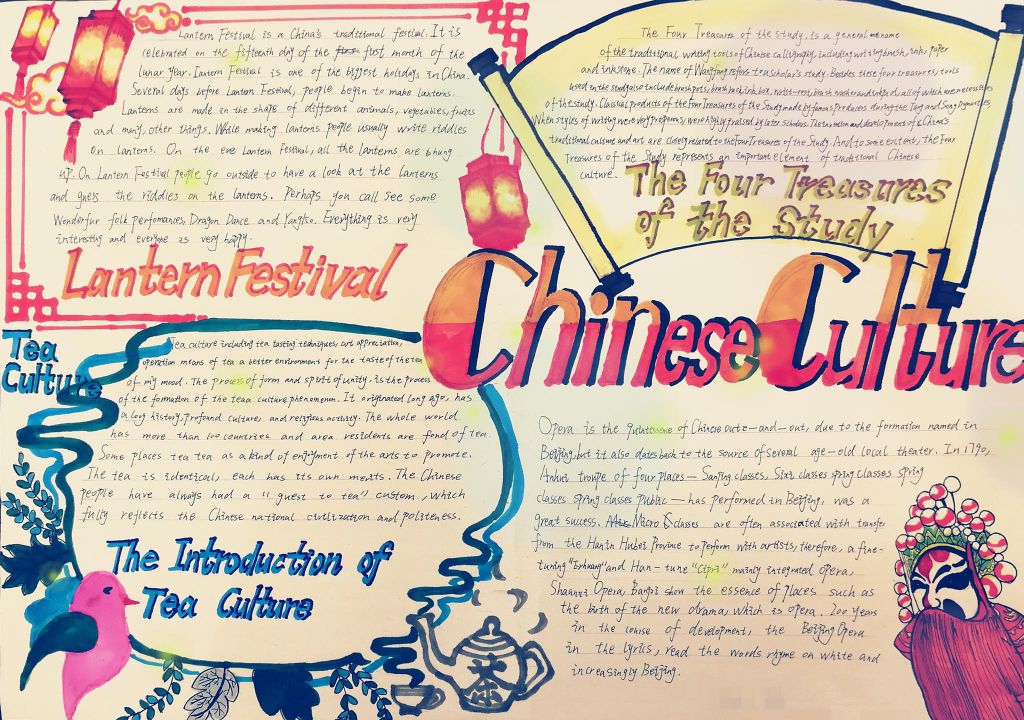 Lantern Festival is a China's traditional festival. It is
celebrated on the fifteenth day of the first month of the
lunar year. Lantern Festival is one of the biggest holidays in China.
Several days before Lantern Festival, people begin to make lanterns.
Lanterns are made in the shape of different animals, vegetables, fruits
and many, other things. While making lanterns people usually write riddles
on lanterns. On the eve Lantern Festival, all the lanterns are bhung
up. On Lantern Festival people go outside to have a look at the lanterns
and guess the riddles on the lanterns. Perhaps you call see some
Wonderful folk perfomances, Dragon Dance and Yangko. Everything is very
interesting and everyone is very happy.
Lantern Festival
The Four Treasures of the study, is a general name
of the traditional writing tools of Chinese calligraphy, including writing brush, ink, paper
and inkstone. The name of Wangfang refers tea scholar's study. Besides these four treasures, tools
used in the study also include brush pots, brush rack, ink box, wrist-rest, brush washer and inkpad, all of which are necessities
of the study. Classical products of the Four Treasures of the Study made by famous producers during the Ting and Song Dynasties
When styles of writing were very were highly praised by later scholars. The and development of China's
traditional culture and art are closely related to the Four Treasures of the Study. And to some extent, the Four
Treasures of the Study represents an important element of traditional Chinese
culture.
The Four Treasures
of the Study
Chinese Culture
Tea
Culture
Tea culture including tea tasting techniques, art appreciation,
operation means of tea a better environment for the taste of the tea
of my mood. The process of form and spirit of unity, is the process
of the formation of the teaa culture phenomenon. It originated long ago, has
a long history, profound culture, and religious activity. The whole world
has more than 100 countries and area residents are fond of tea.
Some places tea tea as a kind of enjoyment of the arts to promote.
The tea is identical, each has its own merits. The Chinese
people have always had a "guest to tea" custom, which
fully reflects the Chinese national civilization and politeness.
The Introduction of
Tea Culture
茶
Opera is the quintessence of Chinese out-and-out, due to the formation named in
Beijing, but it also dates back to the source of several age-old local theater. In 1790,
Anhui troupe of four places - Sanjing classes, Sixi classes spring classes spring
classes spring classes public - has performed in Beijing, was a
great success. Micro classes are often associated with transfer
from the Han in Hubei Province to perform with artists, therefore, a fine-
tuning "Erhuang" and Han-tune "Cipi" mainly integrated opera,
Shaanxi Opera, show the essence of places such as
the birth of the new drama, which is opera. 200 years
in the course of development, the Beijing Opera
in the lyrics, read the words rhyme on white and
increasingly Beijing.